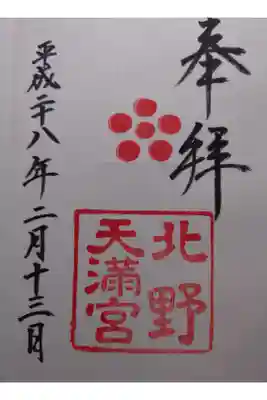 奉拝
北野
天満宮
平成二十八年二月十三日